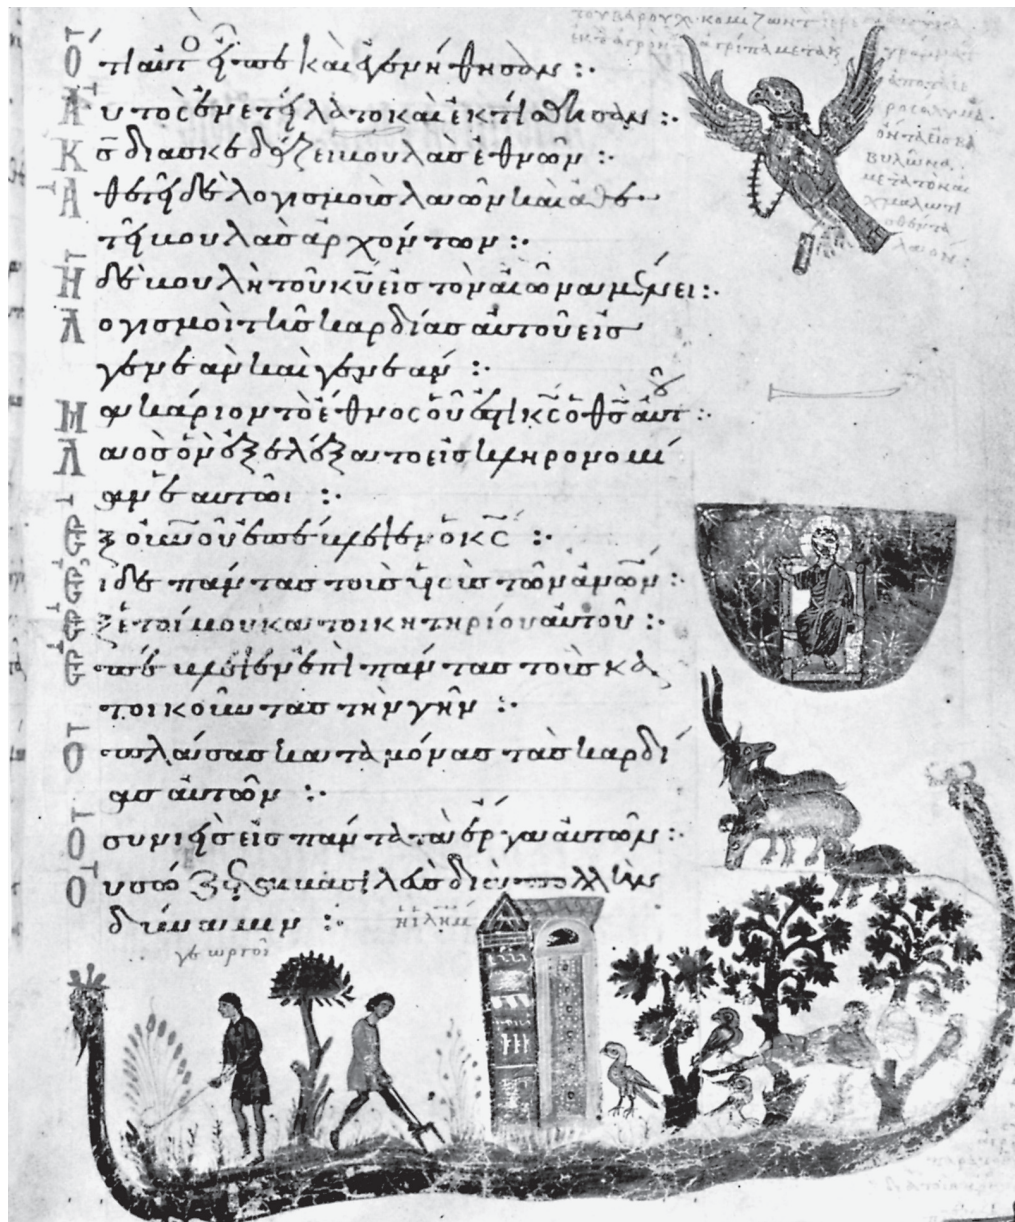 Ὅτι αὐτ(ὸς) εἶπε καὶ ἐγενήθησαν :·
Αὐτὸς ἐνετείλατο καὶ ἐκτίσθησαν :·
Κ̅ς̅ διασκεδάζει βουλὰς ἐθνῶν :·
Ἀθετεῖ δὲ λογισμοὺς λαῶν καὶ ἀθε
τεῖ βουλὰς ἀρχόντων :·
Ἡ δὲ βουλὴ τοῦ κ̅υ̅ εἰς τὸν αἰῶνα μένει :·
Λογισμοὶ τῆς καρδίας αὐτοῦ εἰς
γενεὰν καὶ γενεάν :·
Μακάριον τὸ ἔθνος οὗ ἐστὶ κ̅ς̅ ὁ θ̅ς̅ αὐτοῦ :·
Λαὸς ὃν ἐξελέξατο εἰς κληρονομί
αν ἑαυτῶι :·
Ἐξ οὐ̅ν̅οῦ ἐπέβλεψεν ὁ κ̅ς̅ :·
Εἶδε πάντας τοὺς υἱοὺς τῶν ἀ̅ν̅ῶν :·
Ἐξ ἑτοίμου κατοικητηρίου αὐτοῦ :·
Ἐπέβλεψεν ἐπὶ πάντας τοὺς κα
τοικοῦντας τὴν γῆν :·
Ὁ πλάσας κατὰ μόνας τὰς καρδί
ας αὐτῶν :·
Ὁ συνιεὶς εἰς πάντα τὰ ἔργα αὐτῶν :·
Οὐ σώζεται βασιλεὺς διὰ πολλὴν
δύναμιν :·
ἡ ἰλημ
γεωργοί
βυλῶνα
μετὰ τὸν αἰ
χμαλωτι
σθέντα
λαόν :·